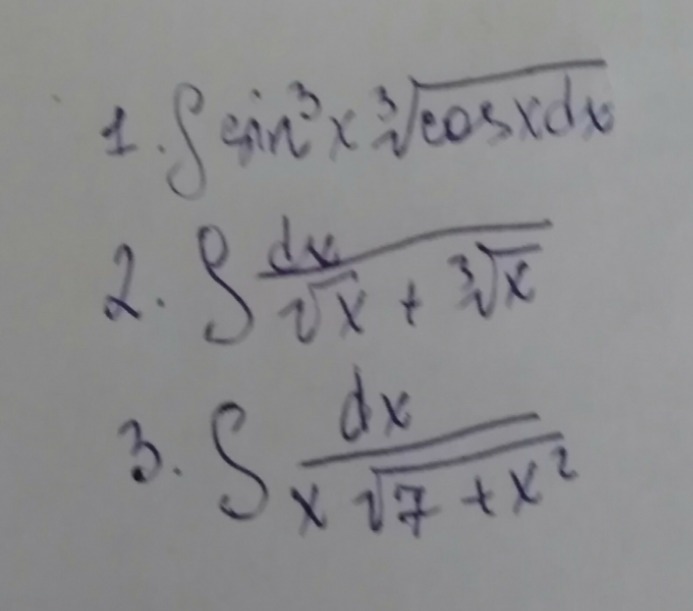 1. ∫ sin³x ∛(cosxdx)
2. ∫ dx/(√x + ∛x)
3. ∫ dx/(x√(7 + x²))